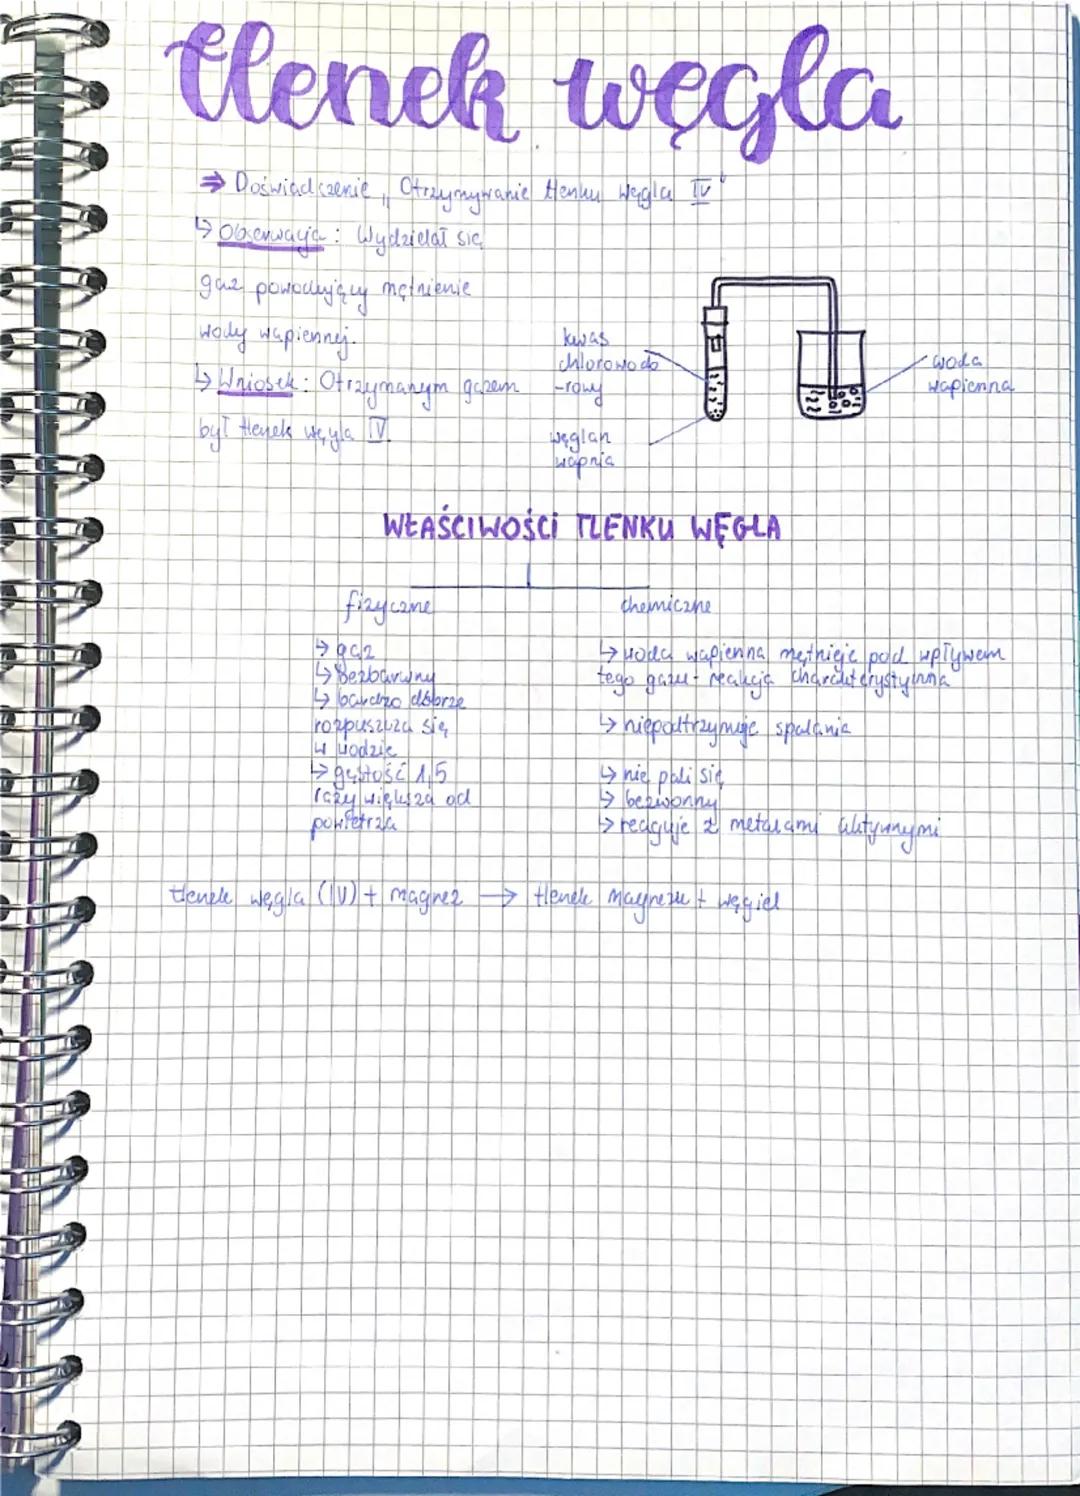 tlenek węgla
⇒ Doświadczenie „ Otrzymywanie tlenku węgla IV"
↳ Obserwacja : Wydzielał się
gaz powodujący mętnienie
wody wapiennej.
↳ Wniosek : Otrzymanym gazem
był tlenek węgla IV.
kwas
chlorowodo
-rowy
węglan
wapnia
woda
wapienna
WŁAŚCIWOŚCI TLENKU WĘGLA
fizyczne
↳ gaz
↳ bezbarwny
↳ bardzo dobrze
rozpuszcza się
w wodzie
↳ gęstość 1,5
razy większa od
powietrza
chemiczne
↳ woda wapienna mętnieje pod wpływem
tego gazu - reakcja charakterystyczna
↳ niepodtrzymuje spalania
↳ nie pali się
↳ bezwonny
↳ reaguje z metalami aktywnymi
tlenek węgla (IV) + magnez → tlenek magnezu + węgiel